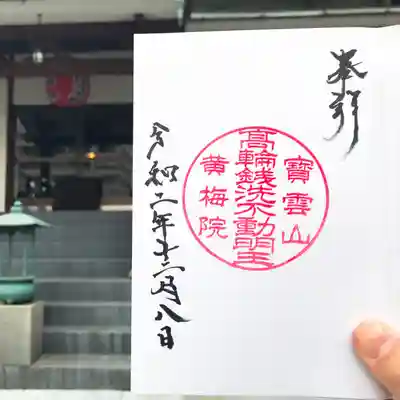 奉拝
寶雲山
高輪銭洗不動明王
黄梅院
令和二年十二月八日